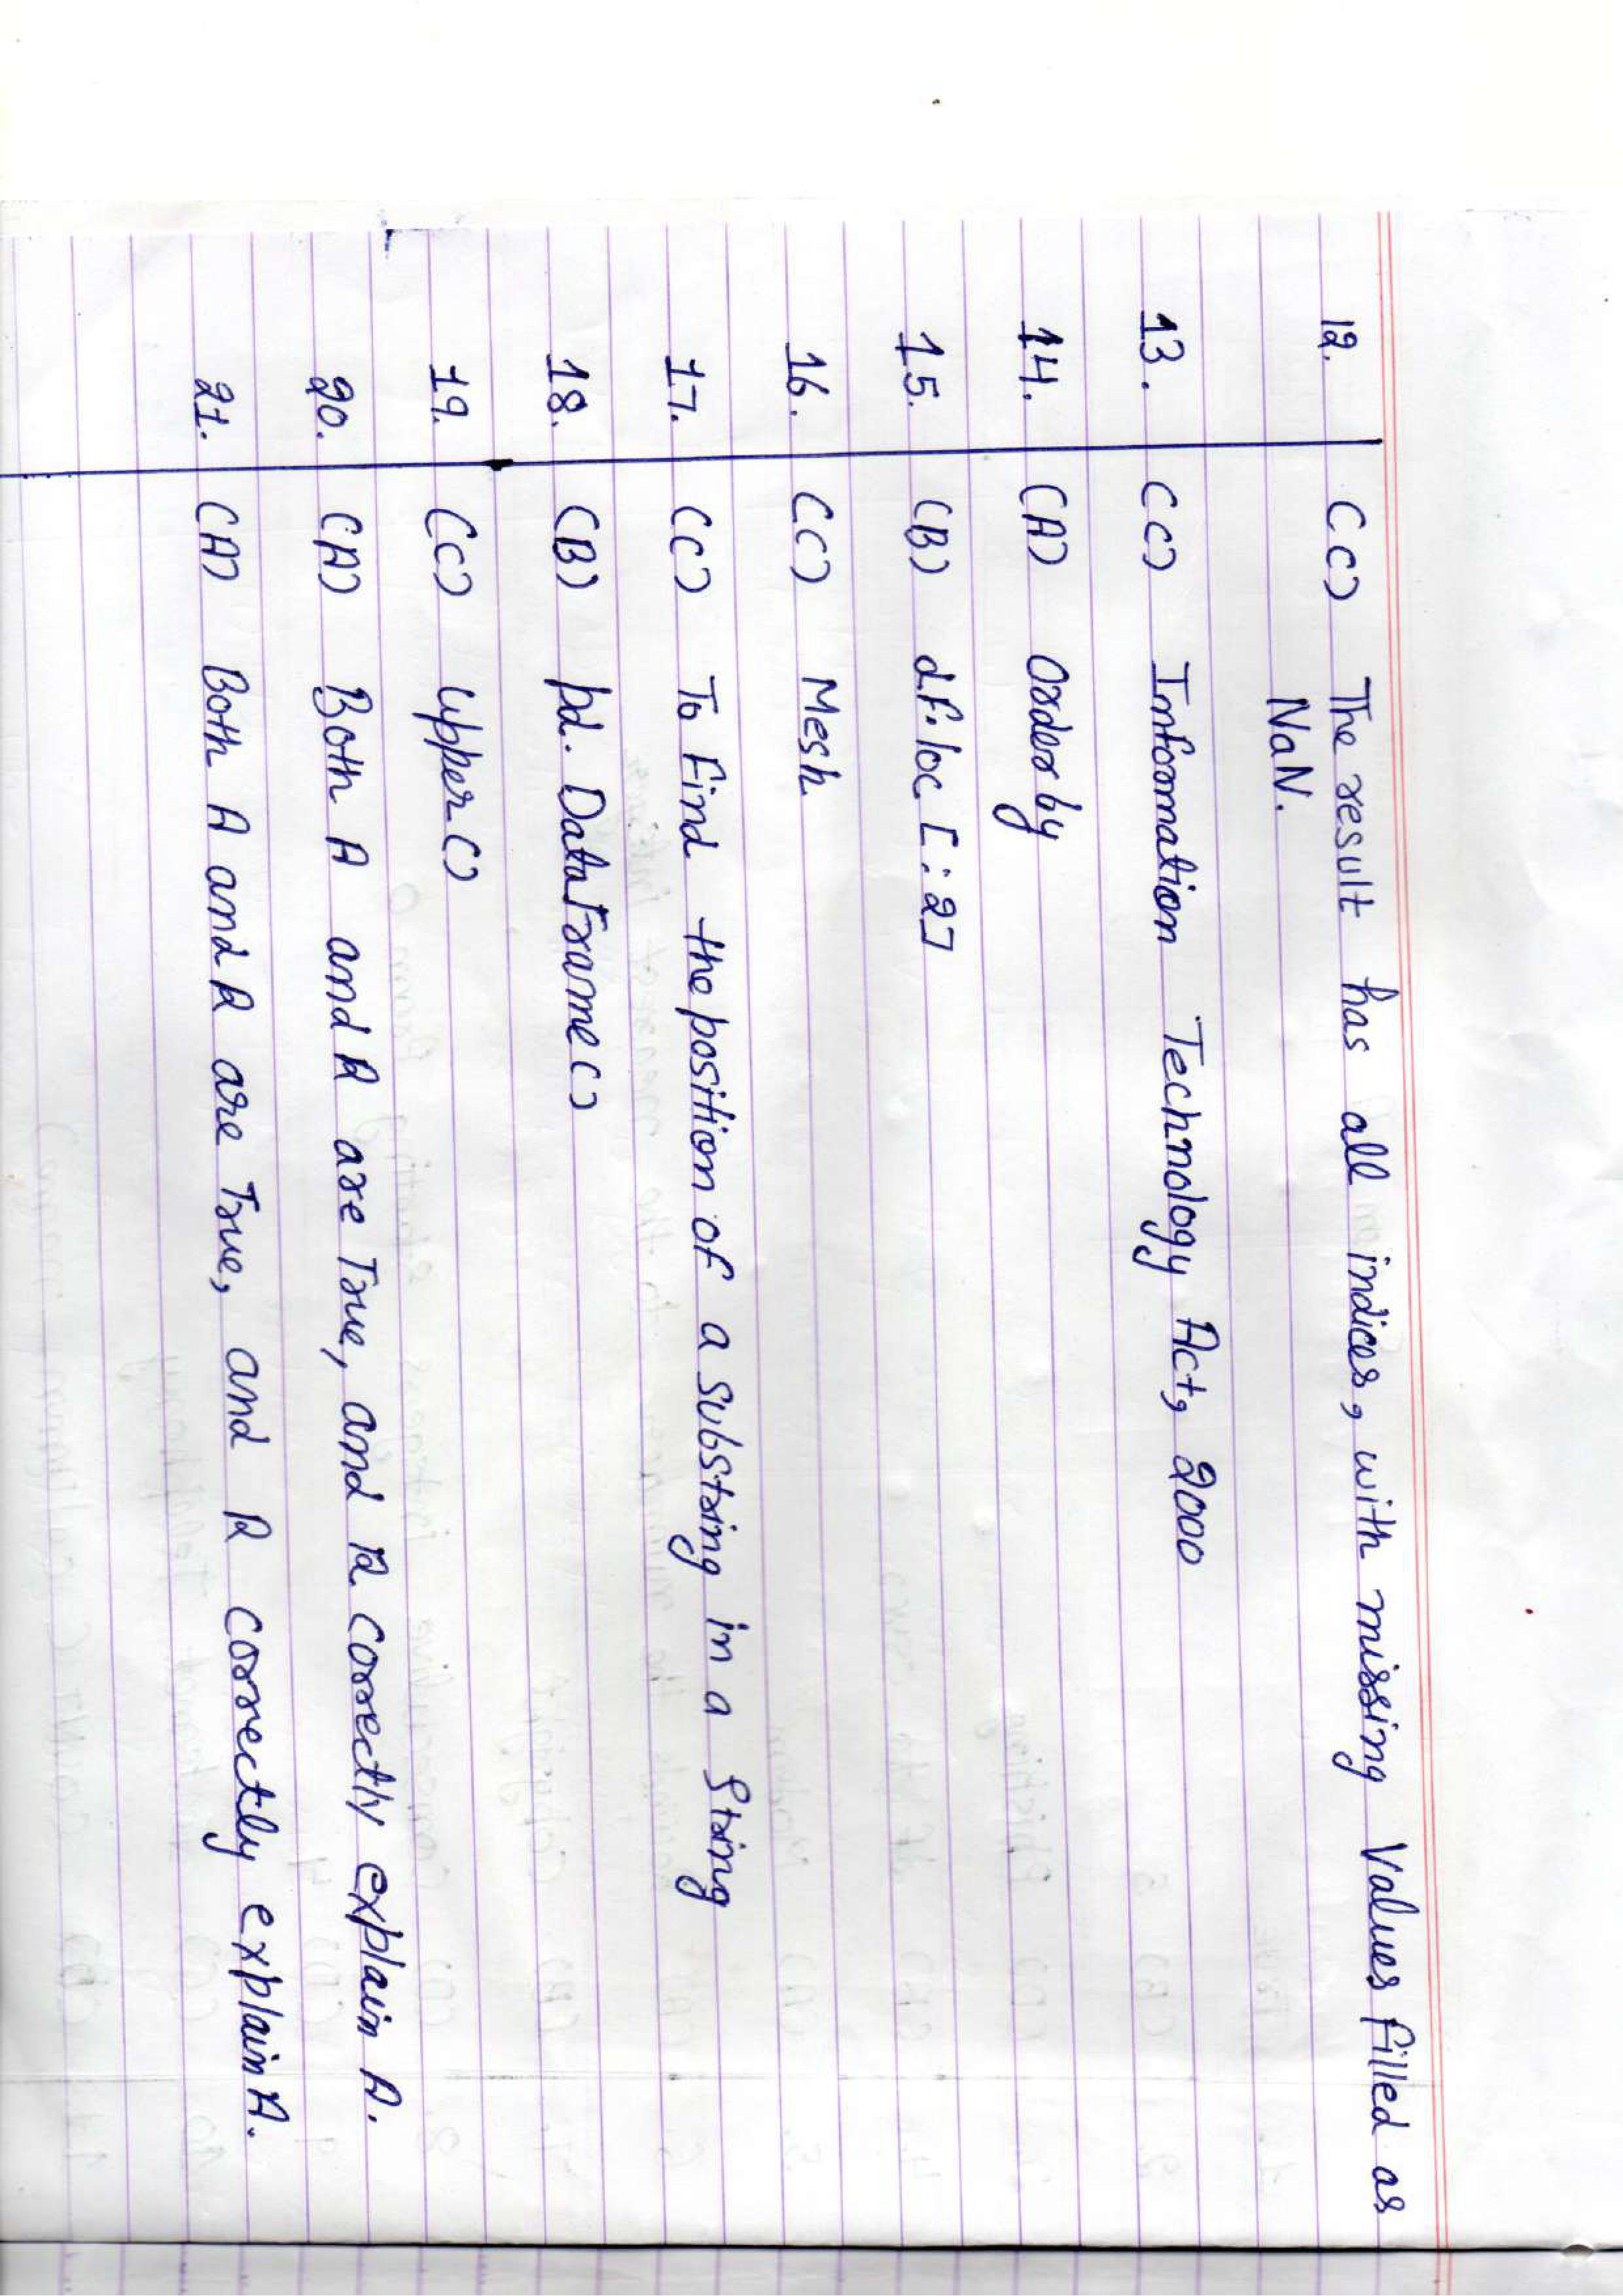 12. (C) The result has all indices, with missing Values filled as
NaN.
13. (C) Information Technology Act, 2000
14. (A) Order by
15. (B) df.loc [:2]
16. (C) Mesh
17. (C) To Find the position of a substring in a String
18. (B) pd. DataFrame()
19. (C) Upper()
20. (A) Both A and R are True, and R correctly explain A.
21. (A) Both A and R are True, and R correctly explain A.